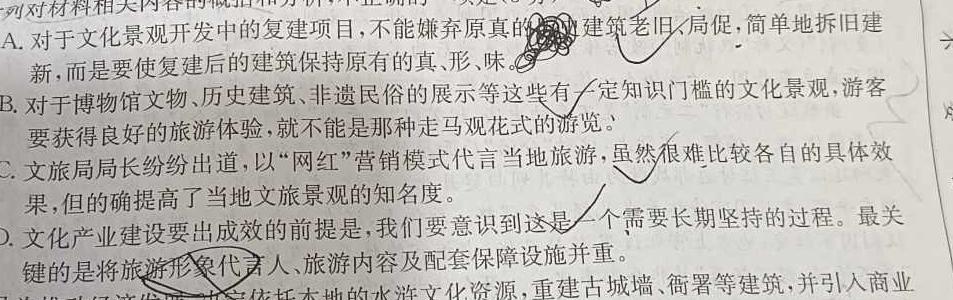 列对材料相关内容的概括和分析,不正确的一项是
A. 对于文化景观开发中的复建项目,不能嫌弃原真的建筑老旧、局促,简单地拆旧建
新,而是要使复建后的建筑保持原有的真、形、味。
B. 对于博物馆文物、历史建筑、非遗民俗的展示等这些有一定知识门槛的文化景观,游客
要获得良好的旅游体验,就不能是那种走马观花式的游览。
C. 文旅局局长纷纷出道,以“网红”营销模式代言当地旅游,虽然很难比较各自的具体效
果,但的确提高了当地文旅景观的知名度。
D. 文化产业建设要出成效的前提是,我们要意识到这是一个需要长期坚持的过程。最关
键的是将旅游形象代言人、旅游内容及配套保障设施并重。
依托本地的水浒文化资源,重建古城墙、衙署等建筑,并引入商业